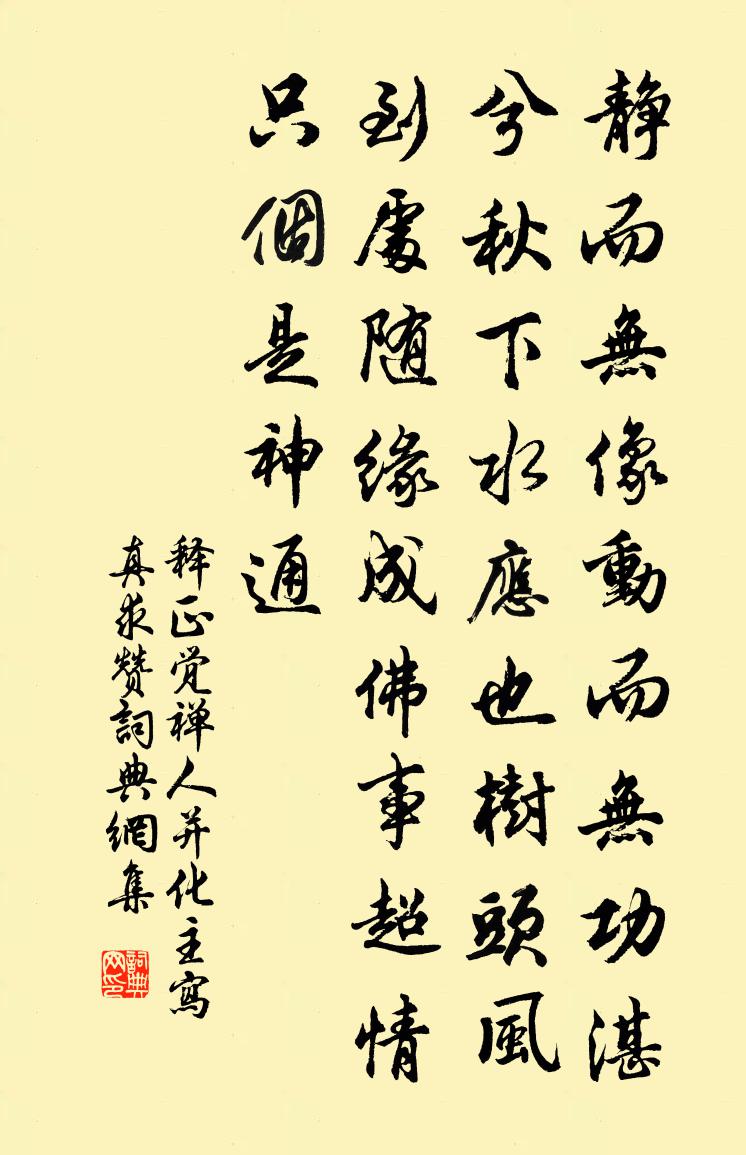 静而無像動而無功湛
兮秋下水應也樹頭風
到處随緣成佛事超情
只個是神通
释正觉禅人并化主寫
真求赞詞典網集
詞典
网印